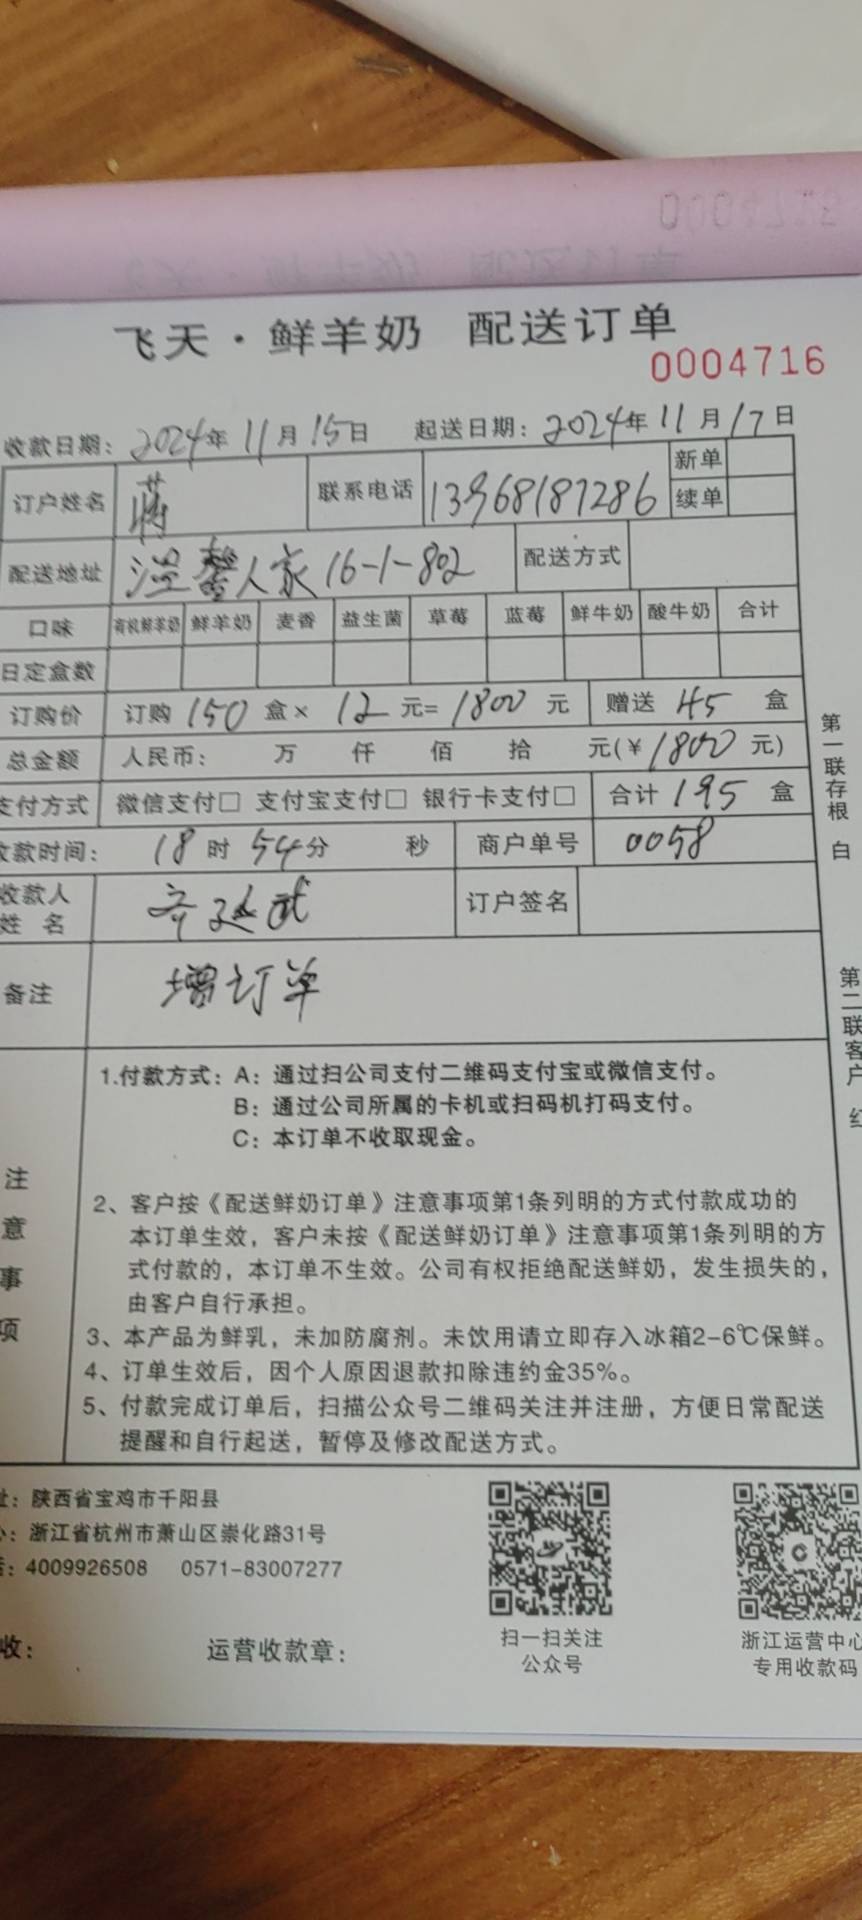 飞天·鲜羊奶 配送订单
0004716
收款日期：2024年11月15日 起送日期：2024年11月17日
订户姓名 蒋 联系电话 13968187286 新单
续单
配送地址 温馨人家16-1-802 配送方式
口味 有机鲜羊奶 鲜羊奶 麦香 益生菌 草莓 蓝莓 鲜牛奶 酸牛奶 合计
日定盒数
订购价 订购 150 盒× 12 元= 1800 元 赠送 45 盒
总金额 人民币： 万 仟 佰 拾 元(￥1800元)
支付方式 微信支付□ 支付宝支付□ 银行卡支付□ 合计 195 盒
收款时间： 18时 54分 秒 商户单号 0058
收款人
姓 名 订户签名
备注 增订单
第一联存根 白
第二联客户 红
注意事项
1.付款方式：A：通过扫公司支付二维码支付宝或微信支付。
B：通过公司所属的卡机或扫码机打码支付。
C：本订单不收取现金。
2、客户按《配送鲜奶订单》注意事项第1条列明的方式付款成功的
本订单生效，客户未按《配送鲜奶订单》注意事项第1条列明的方
式付款的，本订单不生效。公司有权拒绝配送鲜奶，发生损失的，
由客户自行承担。
3、本产品为鲜乳，未加防腐剂。未饮用请立即存入冰箱2-6℃保鲜。
4、订单生效后，因个人原因退款扣除违约金35%。
5、付款完成订单后，扫描公众号二维码关注并注册，方便日常配送
提醒和自行起送，暂停及修改配送方式。
址：陕西省宝鸡市千阳县
心：浙江省杭州市萧山区崇化路31号
话：4009926508 0571-83007277
收： 运营收款章：
扫一扫关注
公众号
浙江运营中心
专用收款码